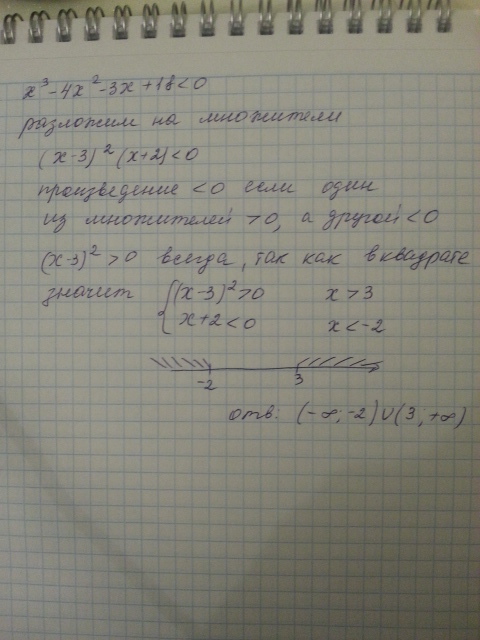 x³-4x²-3x+18<0
разложим на множители
(x-3)²(x+2)<0
произведение <0 если один
из множителей >0, а другой <0
(x-3)²>0 всегда, так как в квадрате
значит {(x-3)²>0 x>3
x+2<0 x<-2
-2 3
отв: (-∞;-2)∪(3,+∞)